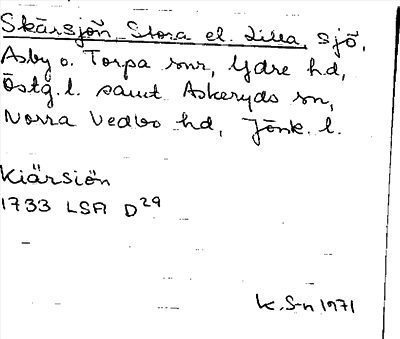 Skärsjön, Stora el. Lilla, sjö,
Asby o. Torpa snr, Ydre hd,
Östg. l. samt Askeryds sn,
Norra Vedbo hd, Jönk. l.
Kiärsiön
1733 LSA D29
K. S-n 1971